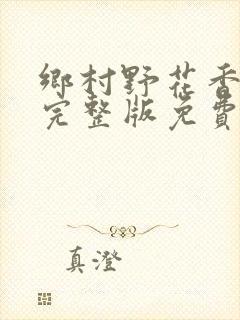 鄉村野花香
完整版免費
真澄